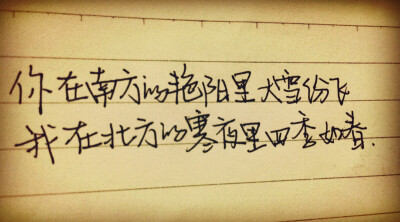 你在南方的艳阳里大雪份飞
我在北方的寒夜里四季如春.